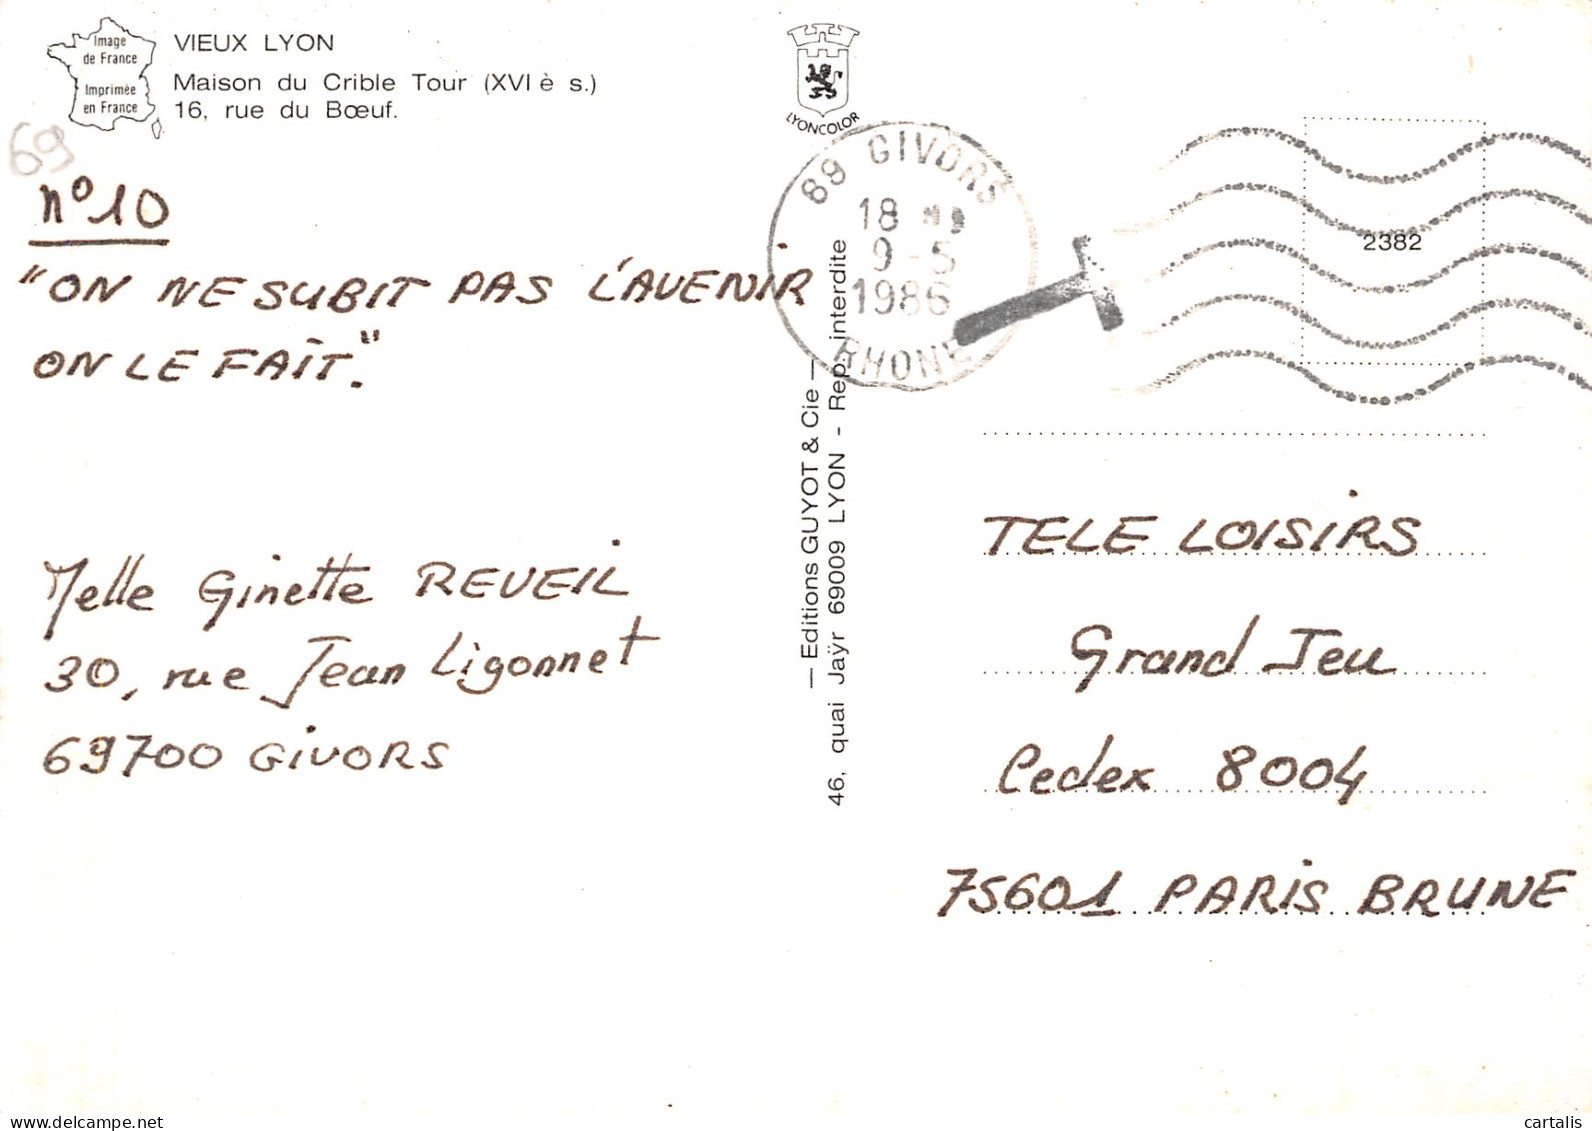 Image
de France
Imprimée
en France
VIEUX LYON
Maison du Crible Tour (XVI è s.)
16, rue du Bœuf.
LYONCOLOR
69
69 GIVORS
18 H
9-5
1986
RHONE
2382
n° 10
"ON NE SUBIT PAS L'AVENIR
ON LE FAIT."
Melle Ginette REVEIL
30, rue Jean Ligonnet
69700 GIVORS
— Editions GUYOT & Cie —
46, quai Jaÿr 69009 LYON - Rep. interdite
TELE LOISIRS
Grand Jeu
Cedex 8004
75601 PARIS BRUNE
www.delcampe.net
cartalis